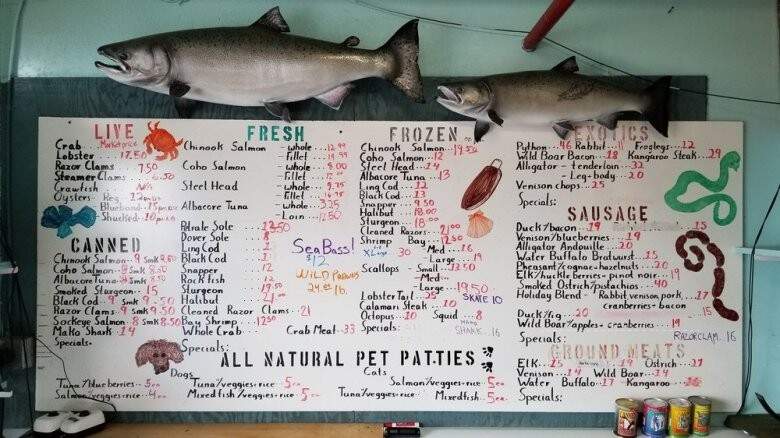 LIVE
Crab Marketprice
Lobster 17.50
Razor Clams 7.50
Steamer Clams 6.50
Crawfish N/A
Oysters
Shucked
CANNED
Chinook Salmon 9 smk 9.50
Coho Salmon 8 smk 8.50
Albacore Tuna
Smoked Sturgeon 15
Black Cod 9 smk 9.50
Razor Clams 9 smk 9.50
Sockeye Salmon 8 smk 8.50
Mako Shark 14
Specials:
FRESH
Chinook Salmon whole 12.99
Fillet
Coho Salmon whole
Fillet
Steel Head whole
Fillet
Albacore Tuna whole 3.25
Loin 12.50
Petrale Sole 12.50
Dover Sole 8
Ling Cod
Black Cod
Snapper
Rock fish
Sturgeon
Halibut
Cleaned Razor Clams 21
Bay Shrimp 12.50
Whole Crab
Crab Meat 33
Specials:
Sea Bass! $12
Wild Prawns
FROZEN
Chinook Salmon
Coho Salmon 12
Steel Head 14
Albacore Tuna 13
Ling Cod 12
Black Cod 13
Snapper 9.50
Halibut 18.00
Sturgeon 18.00
Cleaned Razors 21
Shrimp Bay 12.50
Med 16
XLarge 30
Large 19
Scallops Small 13.50
Med
Large 19.50
Lobster Tail 25
SKATE 10
Calamari Steak 10
Octopus 10 Squid 8
SHARK 16
Specials:
EXOTICS
Python 46 Rabbit 11 Froglegs 12
Wild Boar Bacon 18 Kangaroo Steak 29
Alligator tenderloin 32
Leg/body 20
Venison chops 25
Specials:
SAUSAGE
Duck/bacon 19
Venison/blueberries 19
Alligator Andouille 20
Water Buffalo Bratwurst 15
Pheasant/cognac+hazelnuts 20
Elk/huckleberries + pinot noir 19
Smoked Ostrich/pistachios 40
Holiday Blend Rabbit, venison, pork, 17
cranberries + bacon
Duck/fig 20
Wild Boar/apples + cranberries 19
Specials:
RAZORCLAM 16
GROUND MEATS
Elk 25 Ostrich 27
Venison 14 Wild Boar 14
Water Buffalo 17 Kangaroo
Specials:
ALL NATURAL PET PATTIES
Dogs
Cats
Tuna/blueberries 5.00
Salmon/veggies 4.00
Tuna/veggies + rice 5.00
Mixed fish/veggies + rice 5.00
Salmon/veggies + rice 5.00
Tuna/veggies + rice
Mixed fish 5.00